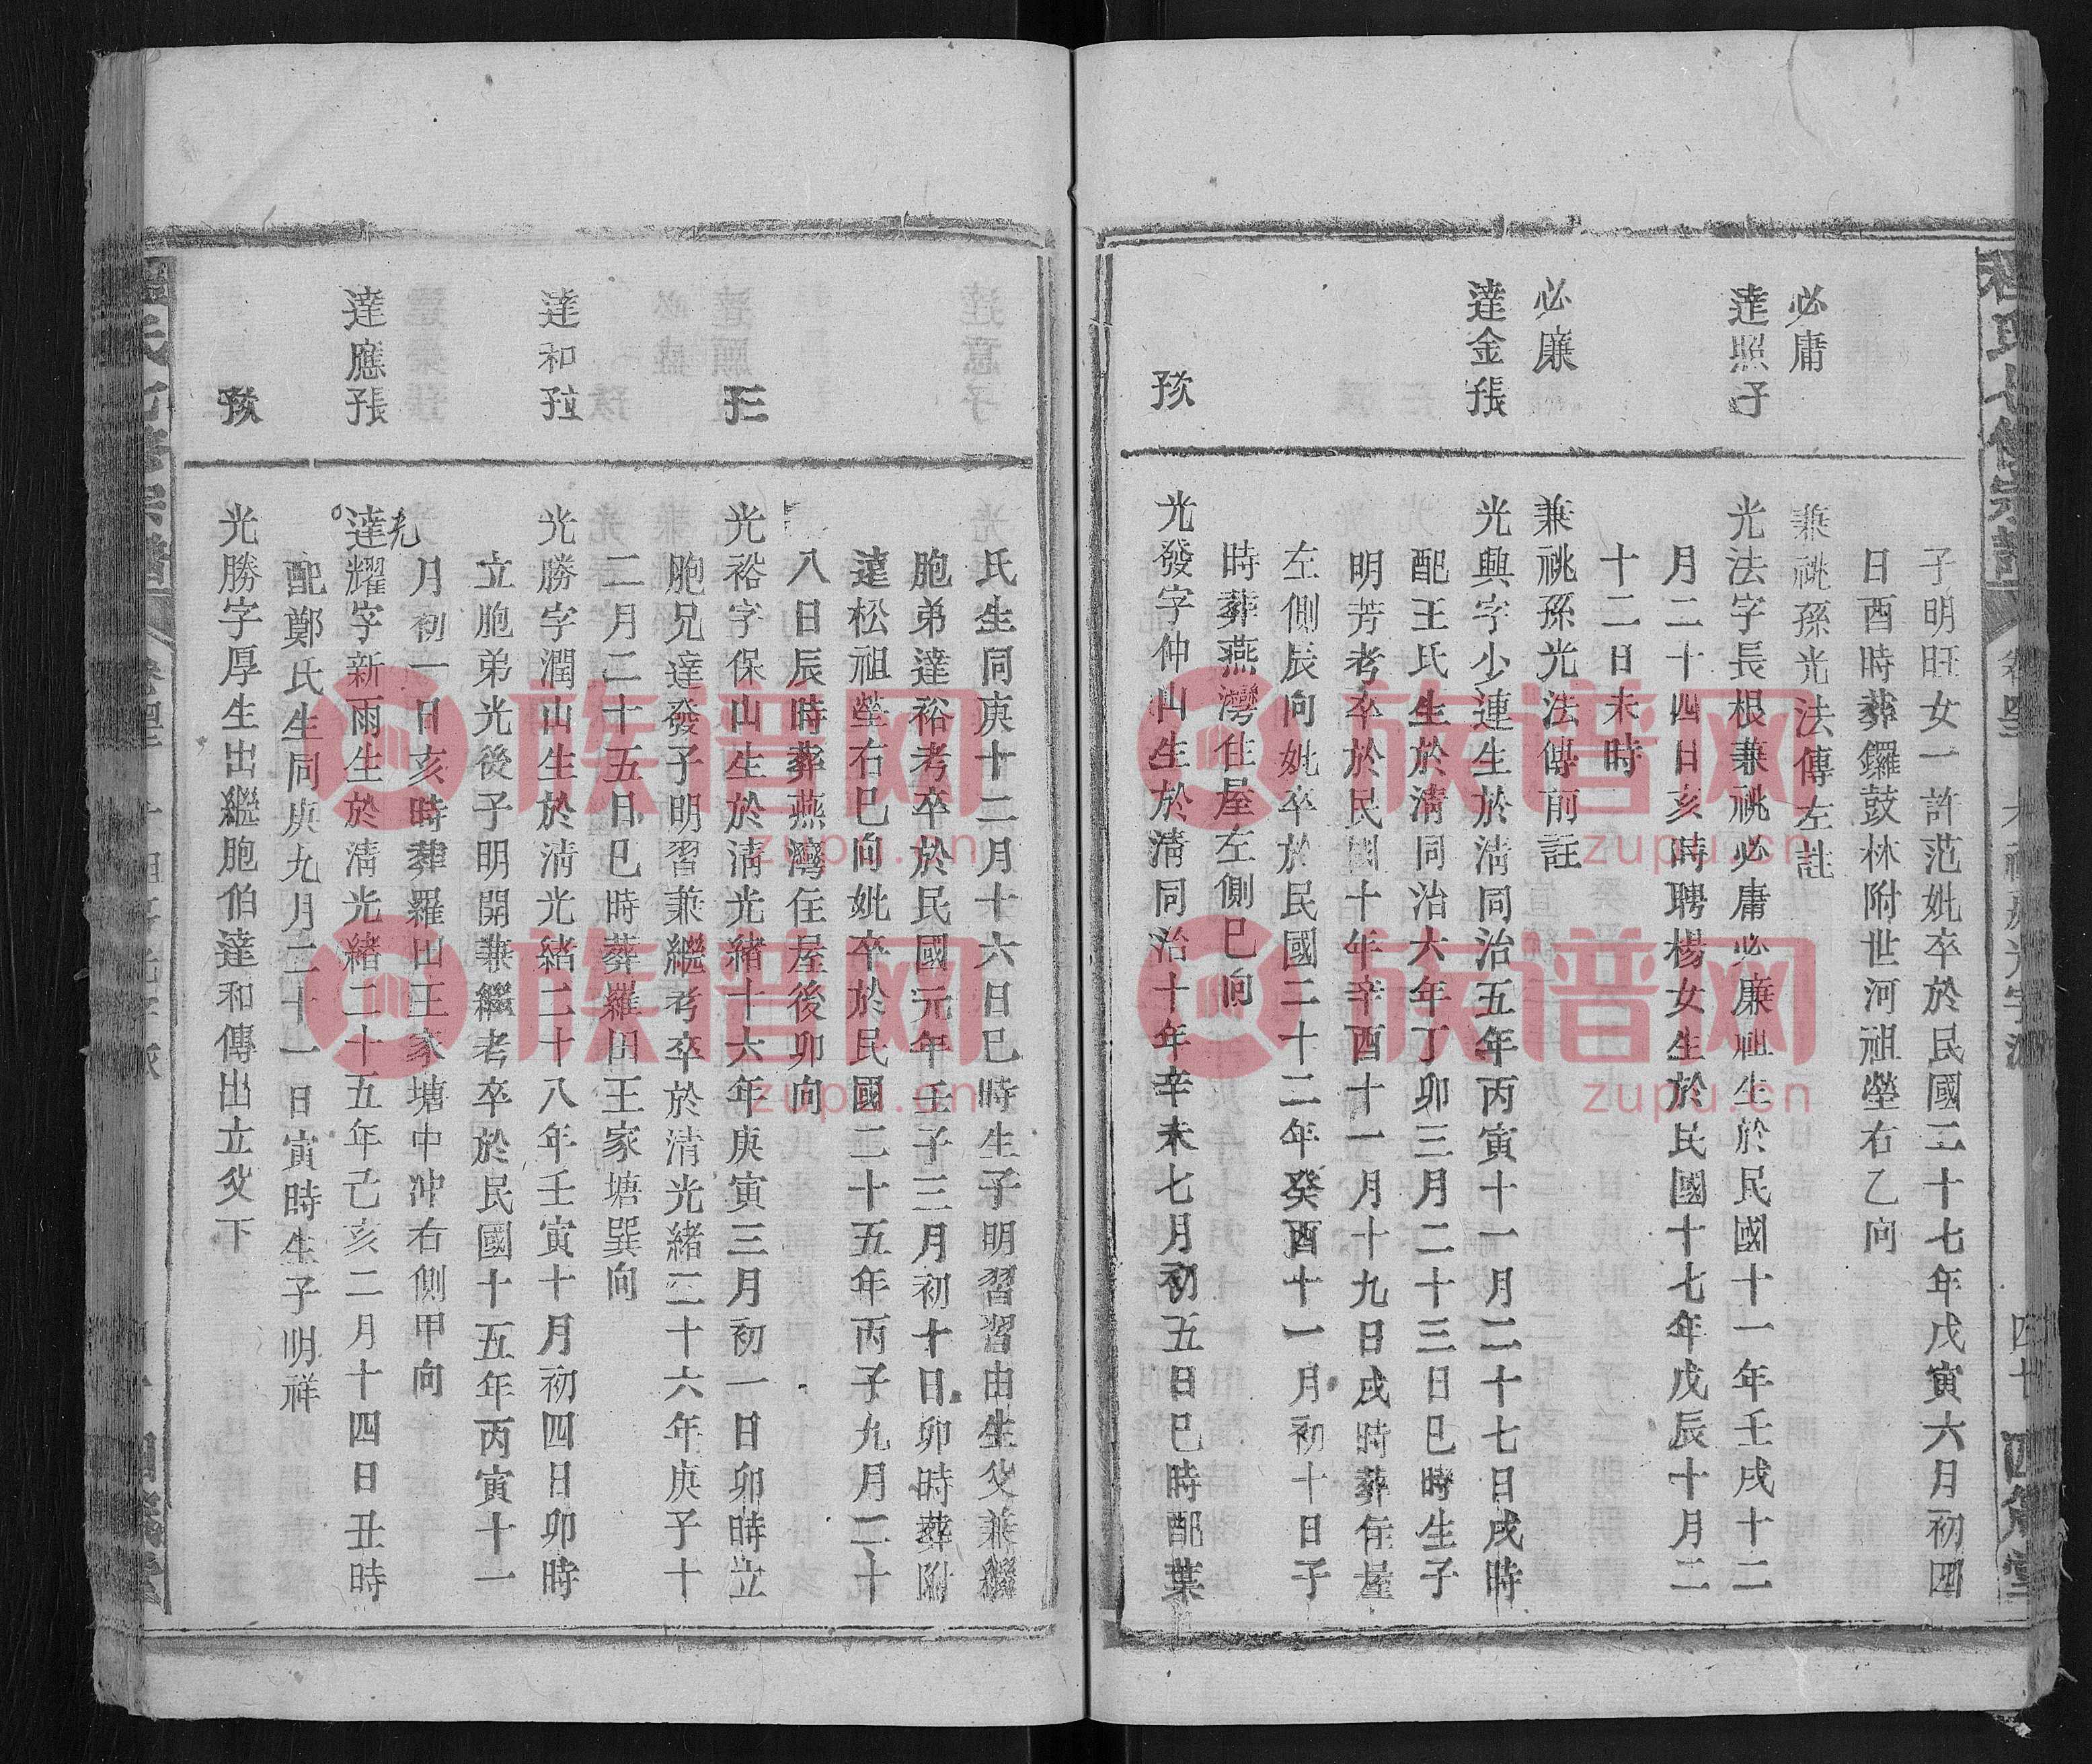 程氏七修宗譜
卷四
四十
子明旺女一許范妣卒於民國二十七年戊寅六月初四
日酉時葬鑼鼓林附世河祖塋右乙向
必庸
兼祧孫光法傳左註
達照子
光法字長根兼祧必庸必廉祖生於民國十一年壬戌十二
月二十四日亥時聘楊女生於民國十七年戊辰十月二
十二日未時
必廉
兼祧孫光法傳前註
達金張子
光興字少連生於清同治五年丙寅十一月二十七日戌時
配王氏生於清同治六年丁卯三月二十三日巳時生子
明芳考卒於民國十年辛酉十一月十九日戌時葬住屋
左側辰向妣卒於民國二十二年癸酉十一月初十日子
時葬燕灣住屋左側巳向
次子
光發字仲山生於清同治十年辛未七月初五日巳時配葉
氏生同庚十二月十六日巳時生子明習習由生父兼繼
胞弟達裕考卒於民國元年壬子三月初十日卯時葬附
達松祖塋右巳向妣卒於民國二十五年丙子九月二十
八日辰時葬燕灣住屋後卯向
三子
光裕字保山生於清光緒十六年庚寅三月初一日卯時立
胞兄達發子明習兼繼考卒於清光緒二十六年庚子十
二月二十五日巳時葬羅田王家塘巽向
達和立子
光勝字潤山生於清光緒二十八年壬寅十月初四日卯時
立胞弟光後子明開兼繼考卒於民國十五年丙寅十一
月初一日亥時葬羅田王家塘中冲右側甲向
達應張子
光
達耀字新雨生於清光緒二十五年己亥二月十四日丑時
配鄭氏生同庚九月二十一日寅時生子明祥
次子
光勝字厚生出繼胞伯達和傳出立父下
族谱网
zupu.cn
族谱网
zupu.cn
族谱网
zupu.cn
族谱网
zupu.cn